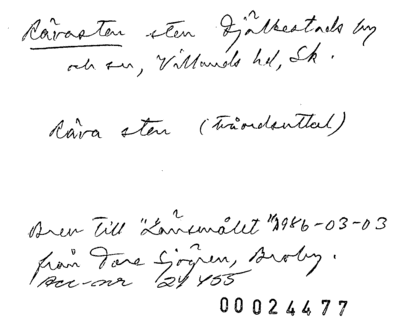 Råvasten sten Fjälkestads by
och sn, Villands hd, Sk.
Råva sten (tvåordsuttal)
Brev till "Länsmålet" 1986-03-03
från Tore Sjögren, Broby.
Acc-nr 24455
00024477